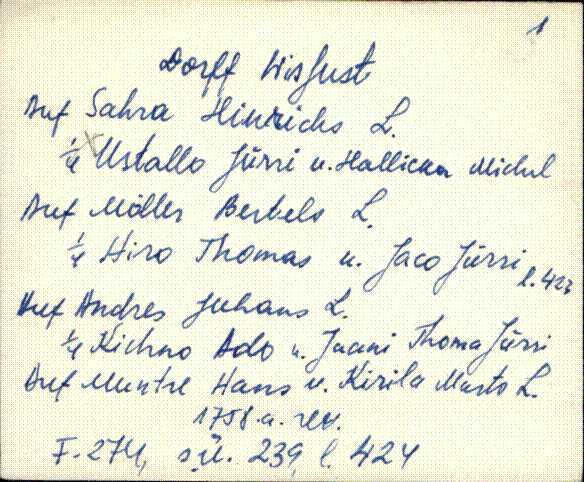 1
Dorff Wisjust
Auf Sahra Hinrichs L.
1/4 Ustallo Jürri u. Hallicka Michel
Auf Möller Bertels L.
1/4 Hiro Thomas u. Jaco Jürri
l. 427
Auf Andres Juhans L.
1/4 Kichno Ado u. Jaani Thoma Jürri
Auf Muntre Hans u. Kirila Marto L.
1758. a. rev.
F. 274, sü. 239, l. 424